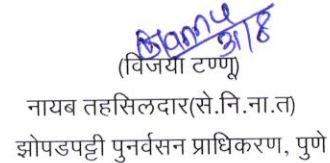 ३१/८
(विजया टण्णू)
नायब तहसिलदार(से.नि.ना.त)
झोपडपट्टी पुनर्वसन प्राधिकरण, पुणे